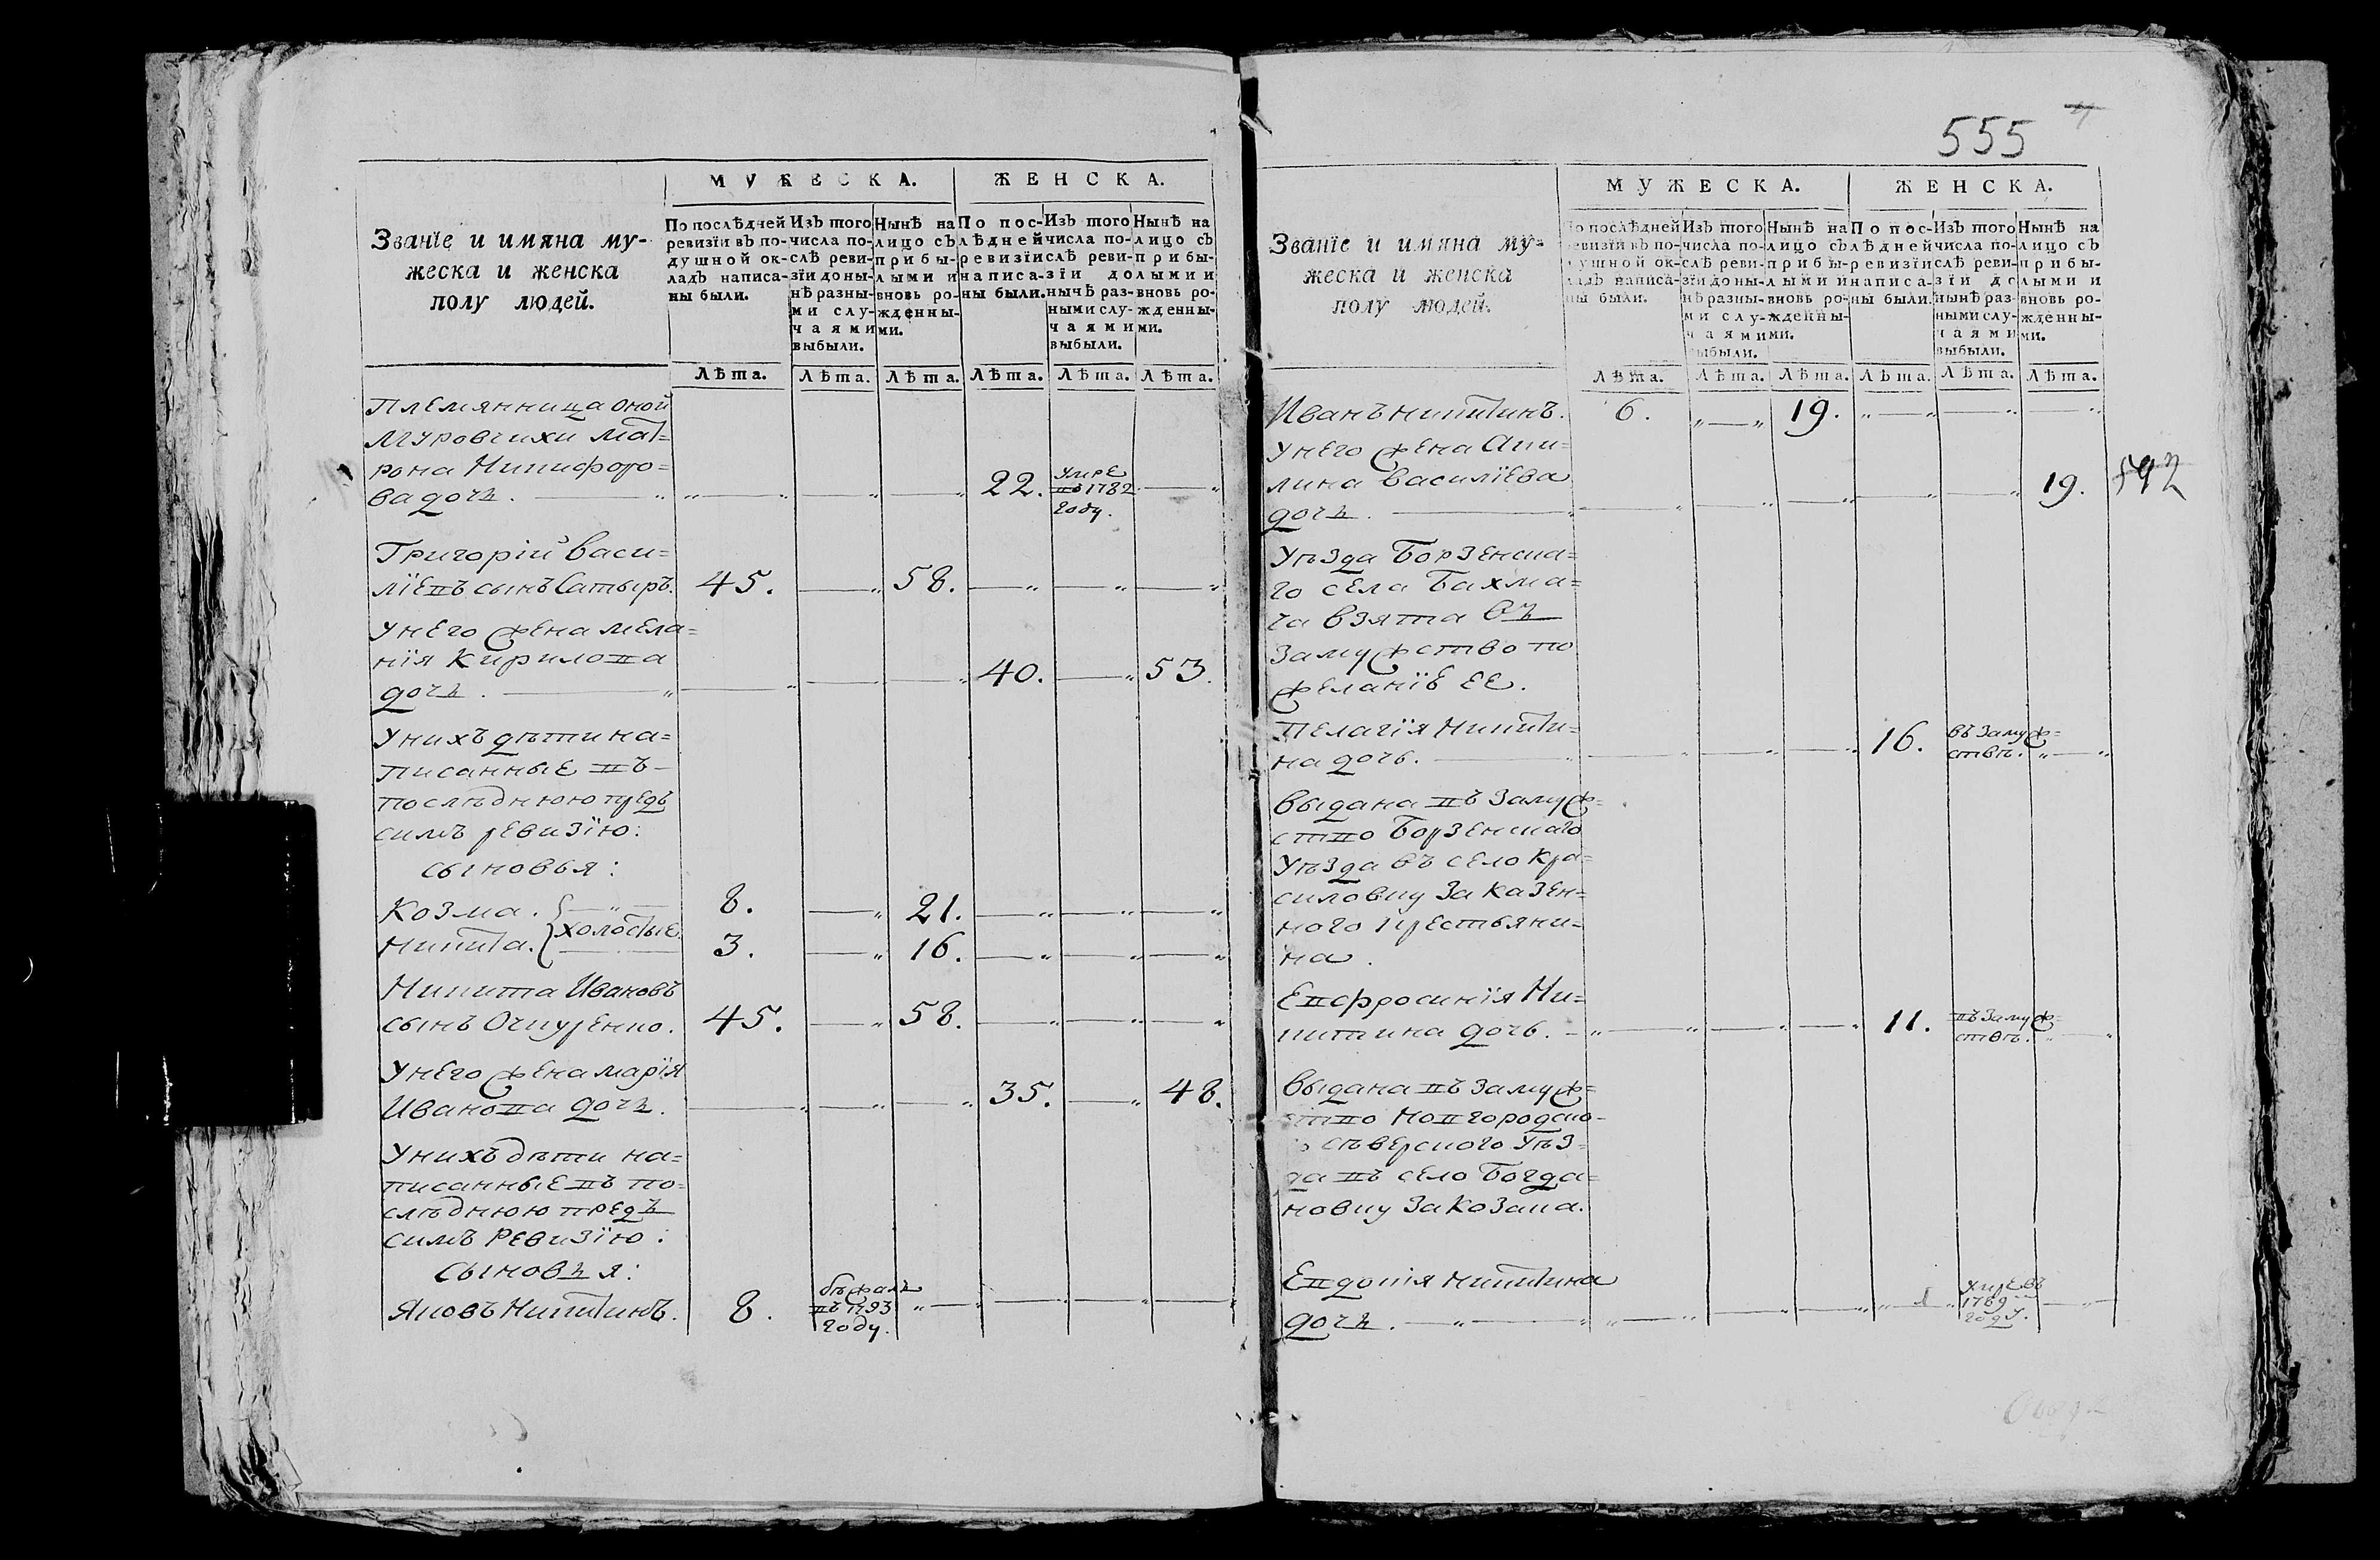 Званїе и имяна му-
жеска и женска
полу людей.
МУЖЕСКА.
ЖЕНСКА.
По послѣдней
ревизїи въ по-
душной ок-
ладъ написа-
ны были.
Изъ того
числа по-
слѣ реви-
зїи доны-
нѣ разны-
ми слу-
чаями
выбыли.
Нынѣ на
лицо съ
прибы-
лыми и
вновь ро-
жденны-
ми.
По пос-
лѣдней
ревизїи
написа-
ны были.
Изъ того
числа по-
слѣ реви-
зїи до
нынѣ раз-
ными слу-
чаями
выбыли.
Нынѣ на
лицо съ
прибы-
лыми и
вновь ро-
жденны-
ми.
Лѣта. Лѣта. Лѣта. Лѣта. Лѣта. Лѣта.
племянница оной
Муровчихи мат=
рона Никифоро=
ва дочь. 22. умре въ 1782 году.
Григорїй васи=
лїевъ сынъ Сатыръ. 45. 58.
у него жена мела=
нїя Кирилова
дочь. 40. 53.
у нихъ дѣти на=
писанные въ
послѣднюю предъ
симъ ревизїю:
сыновья:
Козма. 8. 21.
холостые.
Никита. 3. 16.
Никита Ивановъ
сынъ Очкуренко. 45. 58.
у него жена марїя
Иванова дочь. 35. 48.
у нихъ дѣти на=
писанные въ по=
слѣднюю предъ
симъ ревизїю:
сыновья:
Яковъ Никитинъ. 8. бѣжалъ въ 1793 году.
555
Званїе и имяна му-
жеска и женска
полу людей.
МУЖЕСКА.
ЖЕНСКА.
По послѣдней
ревизїи въ по-
душной ок-
ладъ написа-
ны были.
Изъ того
числа по-
слѣ реви-
зїи доны-
нѣ разны-
ми слу-
чаями
выбыли.
Нынѣ на
лицо съ
прибы-
лыми и
вновь ро-
жденны-
ми.
По пос-
лѣдней
ревизїи
написа-
ны были.
Изъ того
числа по-
слѣ реви-
зїи до
нынѣ раз-
ными слу-
чаями
выбыли.
Нынѣ на
лицо съ
прибы-
лыми и
вновь ро-
жденны-
ми.
Лѣта. Лѣта. Лѣта. Лѣта. Лѣта. Лѣта.
Иванъ никитинъ. 6. 19.
у него жена Аки=
лина василїева
дочь. 19.
уѣзда Борзенска=
го села Бахма=
ча взята въ
замужство по
желанїе ее.
Пелагїя Никити=
на дочь. 16. въ замуж=
ствѣ.
выдана въ замуж=
ство Борзенскаго
уѣзда въ село Кра=
силовку за казен=
ного крестьяни=
на.
Евфросинїя Ни=
китина дочь. 11. въ замуж=
ствѣ.
выдана въ замуж=
ство Новгородско=
сѣверского уѣз=
да въ село Богда=
новку за козака.
Евдокїя никитина
дочь. 1789 году.